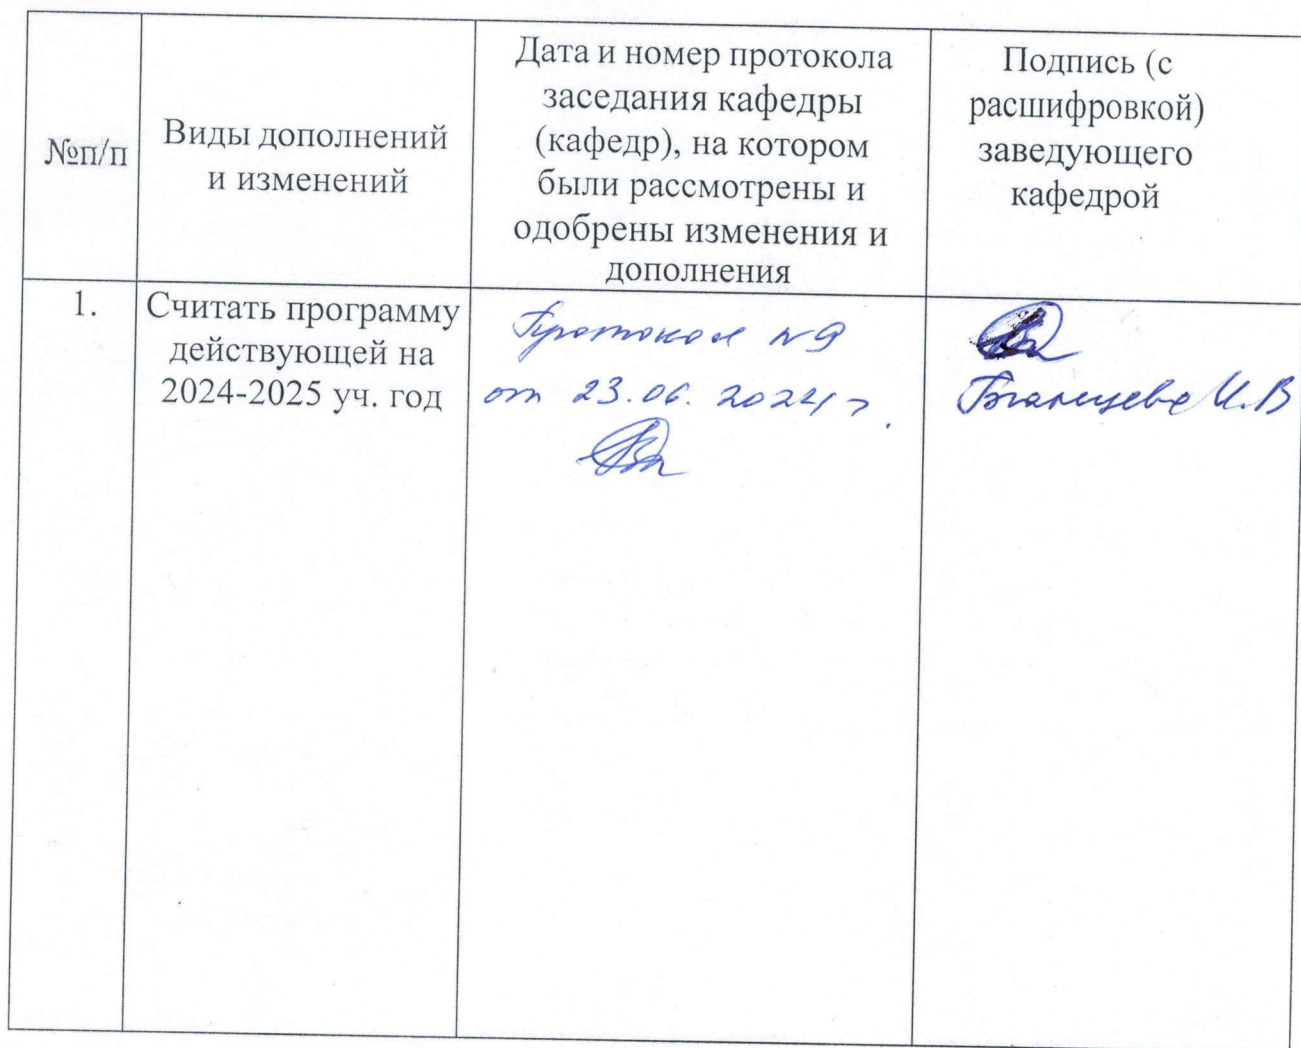 №п/п
Виды дополнений
и изменений
Дата и номер протокола
заседания кафедры
(кафедр), на котором
были рассмотрены и
одобрены изменения и
дополнения
Подпись (с
расшифровкой)
заведующего
кафедрой
1.
Считать программу
действующей на
2024-2025 уч. год
Протокол №9
от 23.06.2024 г.
И.В